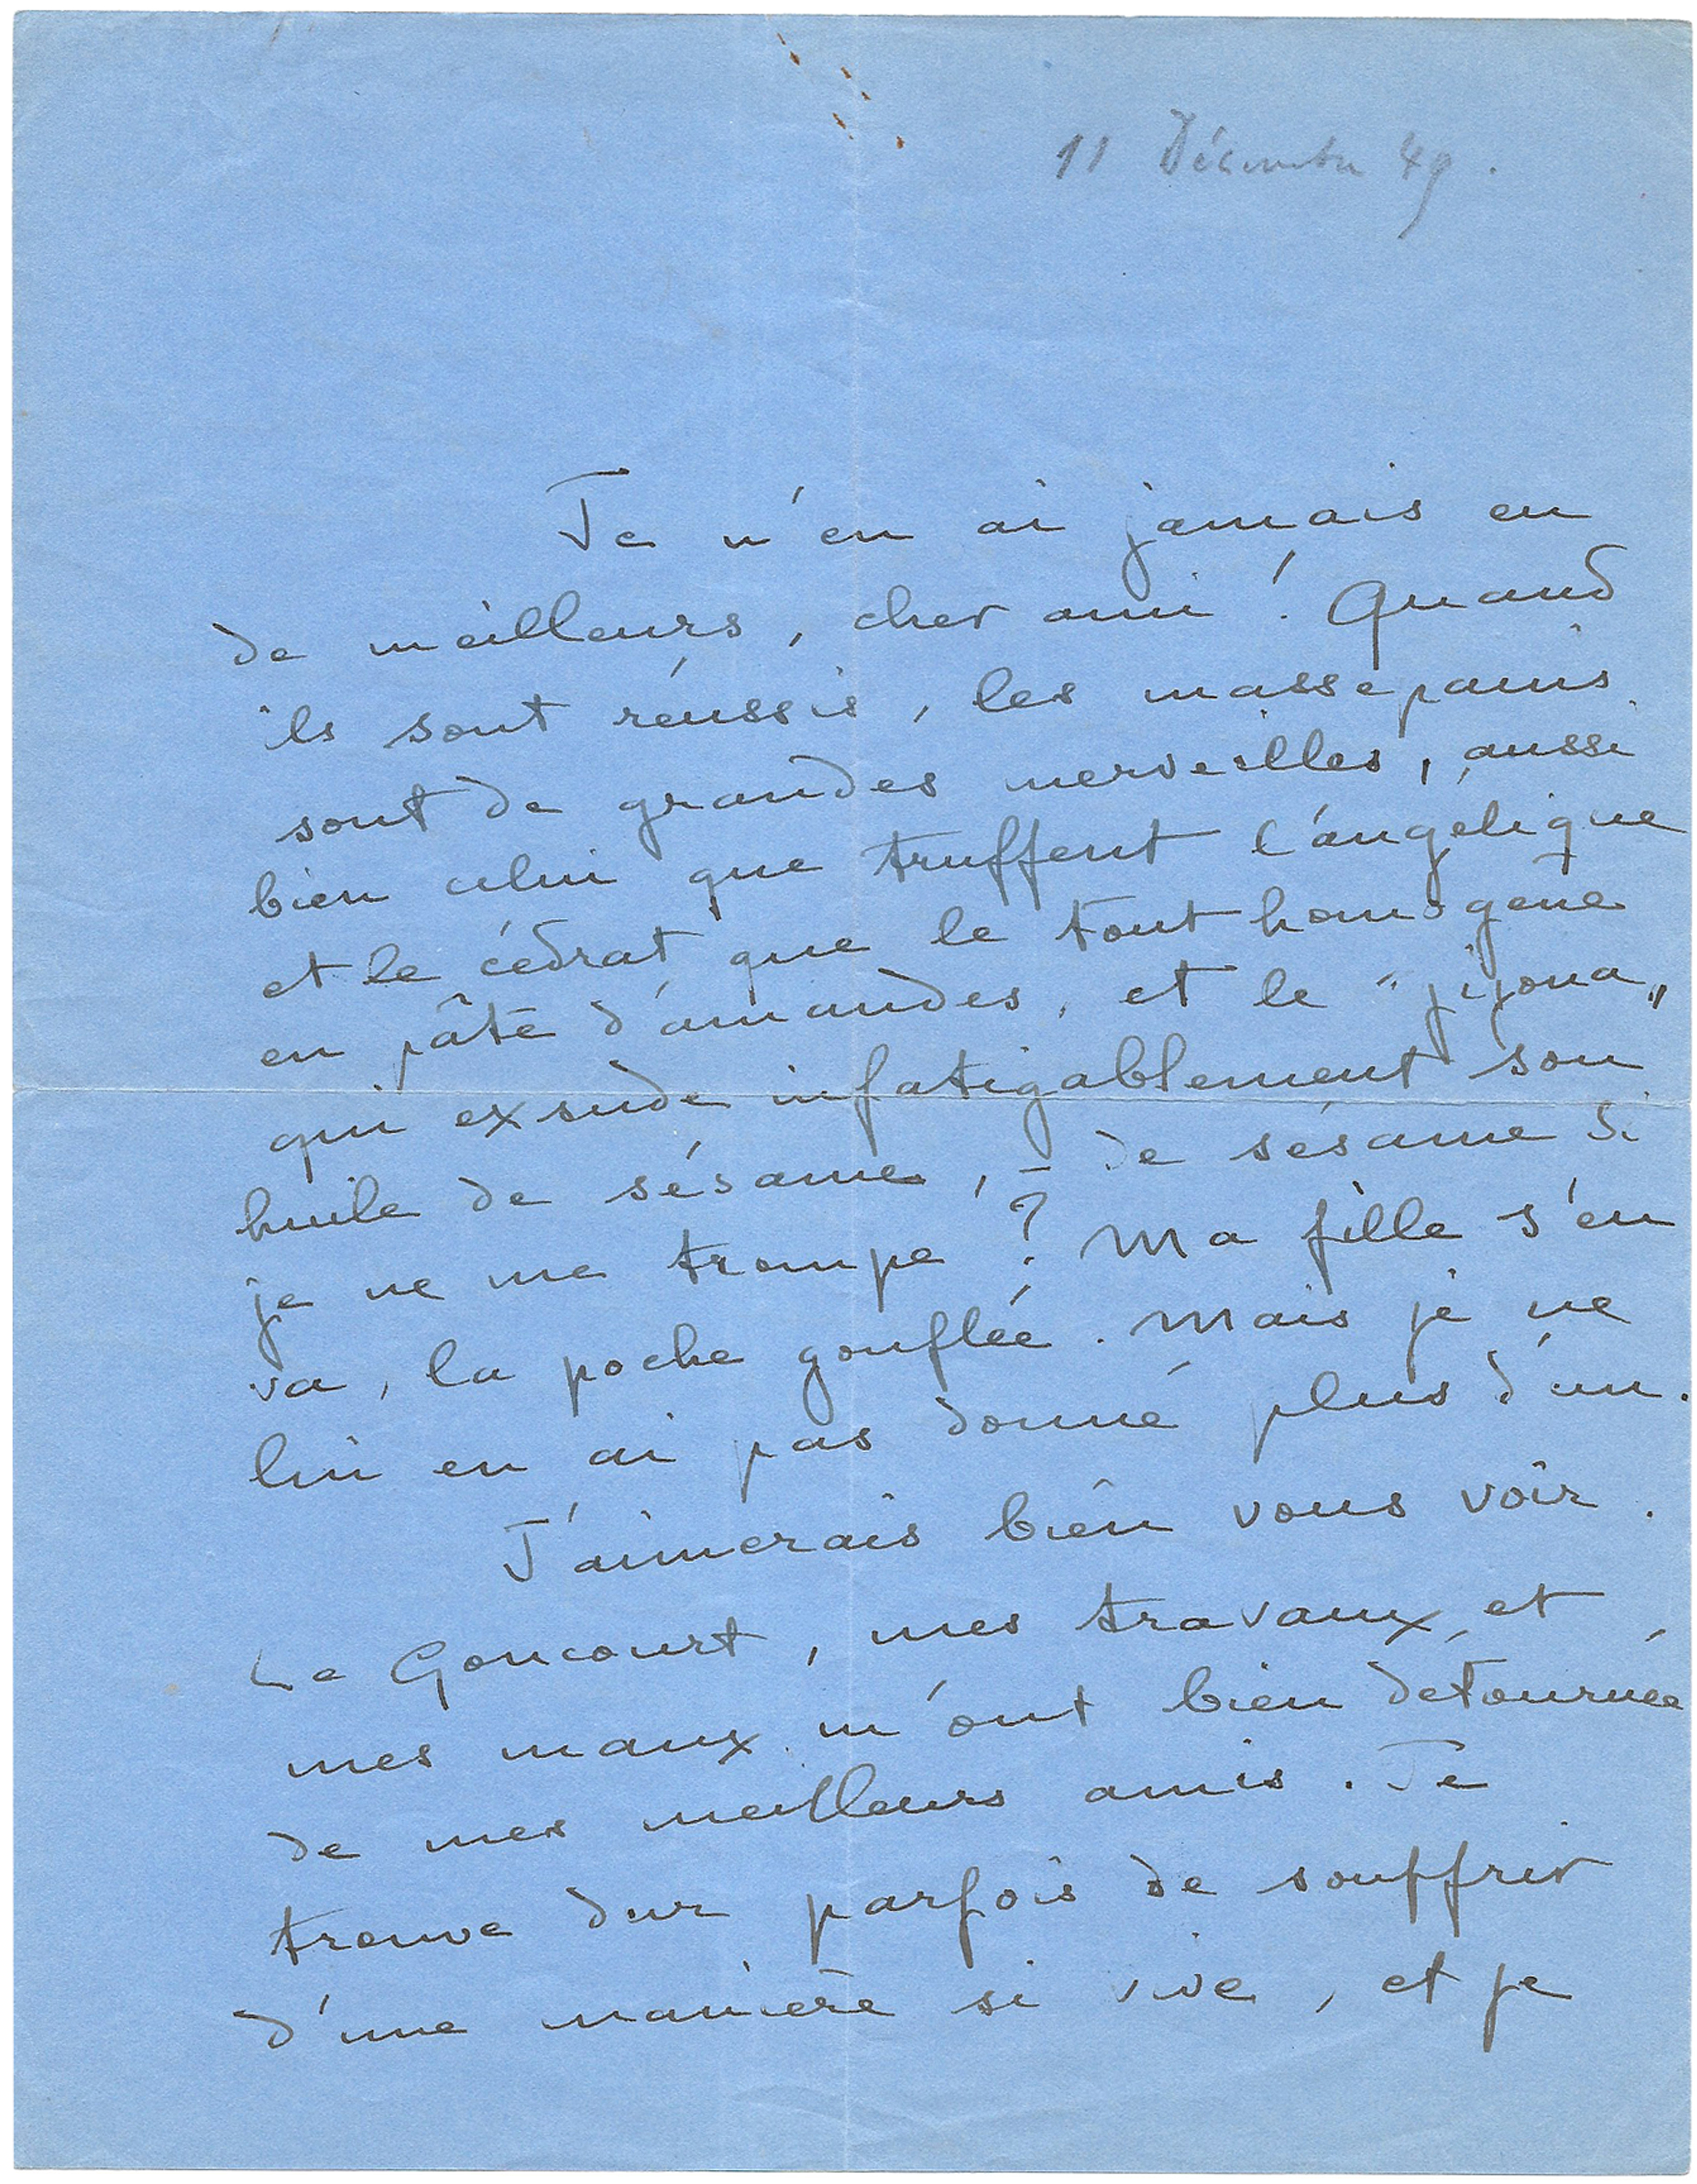 11 Décembre 49.
Je n'en ai jamais eu
de meilleurs, cher ami ! Quand
ils sont réussis, les massepains
sont de grandes merveilles, aussi
bien celui que truffent l'angélique
et le cédrat que le tout homogène
en pâte d'amandes, et le "jijona"
qui exsude infatigablement son
huile de sésame, - de sésame si
je ne me trompe ? Ma fille s'en
va, la poche gonflée. Mais je ne
lui en ai pas donné plus d'un.
J'aimerais bien vous voir.
Le Goncourt, mes travaux, et
mes maux m'ont bien détournée
de mes meilleurs amis. Je
trouve dur parfois de souffrir
d'une manière si vive, et je